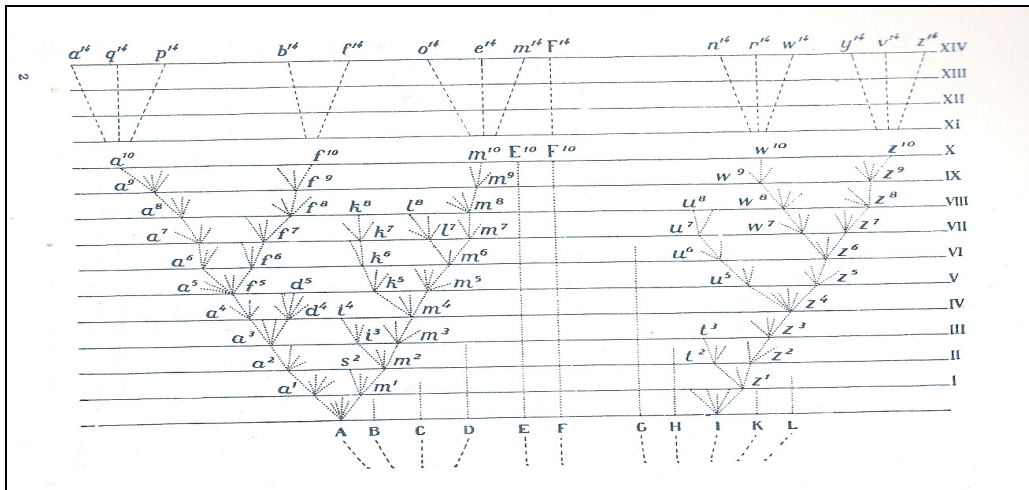 a¹⁴ q¹⁴ p¹⁴ b¹⁴ f¹⁴ o¹⁴ e¹⁴ m¹⁴ F¹⁴ n¹⁴ r¹⁴ w¹⁴ y¹⁴ v¹⁴ z¹⁴ XIV
2
XIII
XII
XI
a¹⁰ f¹⁰ m¹⁰ E¹⁰ F¹⁰ w¹⁰ z¹⁰ X
a⁹ f⁹ m⁹ w⁹ z⁹ IX
a⁸ f⁸ k⁸ l⁸ m⁸ u⁸ w⁸ z⁸ VIII
a⁷ f⁷ k⁷ l⁷ m⁷ u⁷ w⁷ z⁷ VII
a⁶ f⁶ k⁶ m⁶ u⁶ z⁶ VI
a⁵ f⁵ d⁵ k⁵ m⁵ u⁵ z⁵ V
a⁴ d⁴ i⁴ m⁴ z⁴ IV
a³ i³ m³ t³ z³ III
a² s² m² t² z² II
a¹ m¹ z¹ I
A B C D E F G H I K L